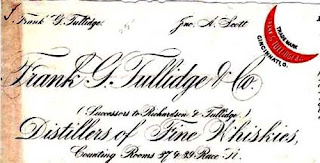 Frank G. Tullidge. Jno. A. Scott
TRADE MARK
CINCINNATI, O.
Frank G. Tullidge & Co.
(Successors to Richardson & Tullidge.)
Distillers of Fine Whiskies,
Counting Rooms 27 & 29 Race St.